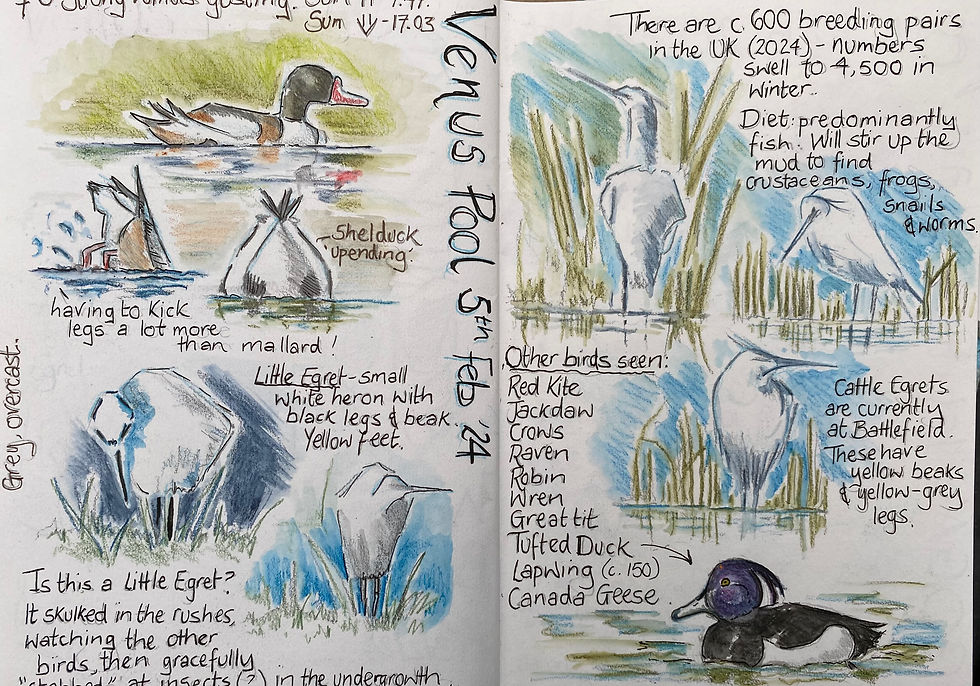 Strong winds gusting. Sun
Sun ↓ -17.03
Shelduck
upending.
having to kick
legs a lot more
than mallard!
Grey, overcast.
Little Egret - small
white heron with
black legs & beak.
Yellow feet.
Is this a Little Egret?
It skulked in the rushes,
watching the other
birds, then gracefully
"stabbed" at insects (?) in the undergrowth.
Venus Pool 5th Feb '24
There are c. 600 breeding pairs
in the UK (2024) - numbers
swell to 4,500 in
winter.
Diet: predominantly
fish. Will stir up the
mud to find
crustaceans, frogs,
snails
& worms.
Other birds seen:
Red Kite
Jackdaw
Crows
Raven
Robin
Wren
Great tit
Tufted Duck
Lapwing (c. 150)
Canada Geese
Cattle Egrets
are currently
at Battlefield.
These have
yellow beaks
& yellow-grey
legs.